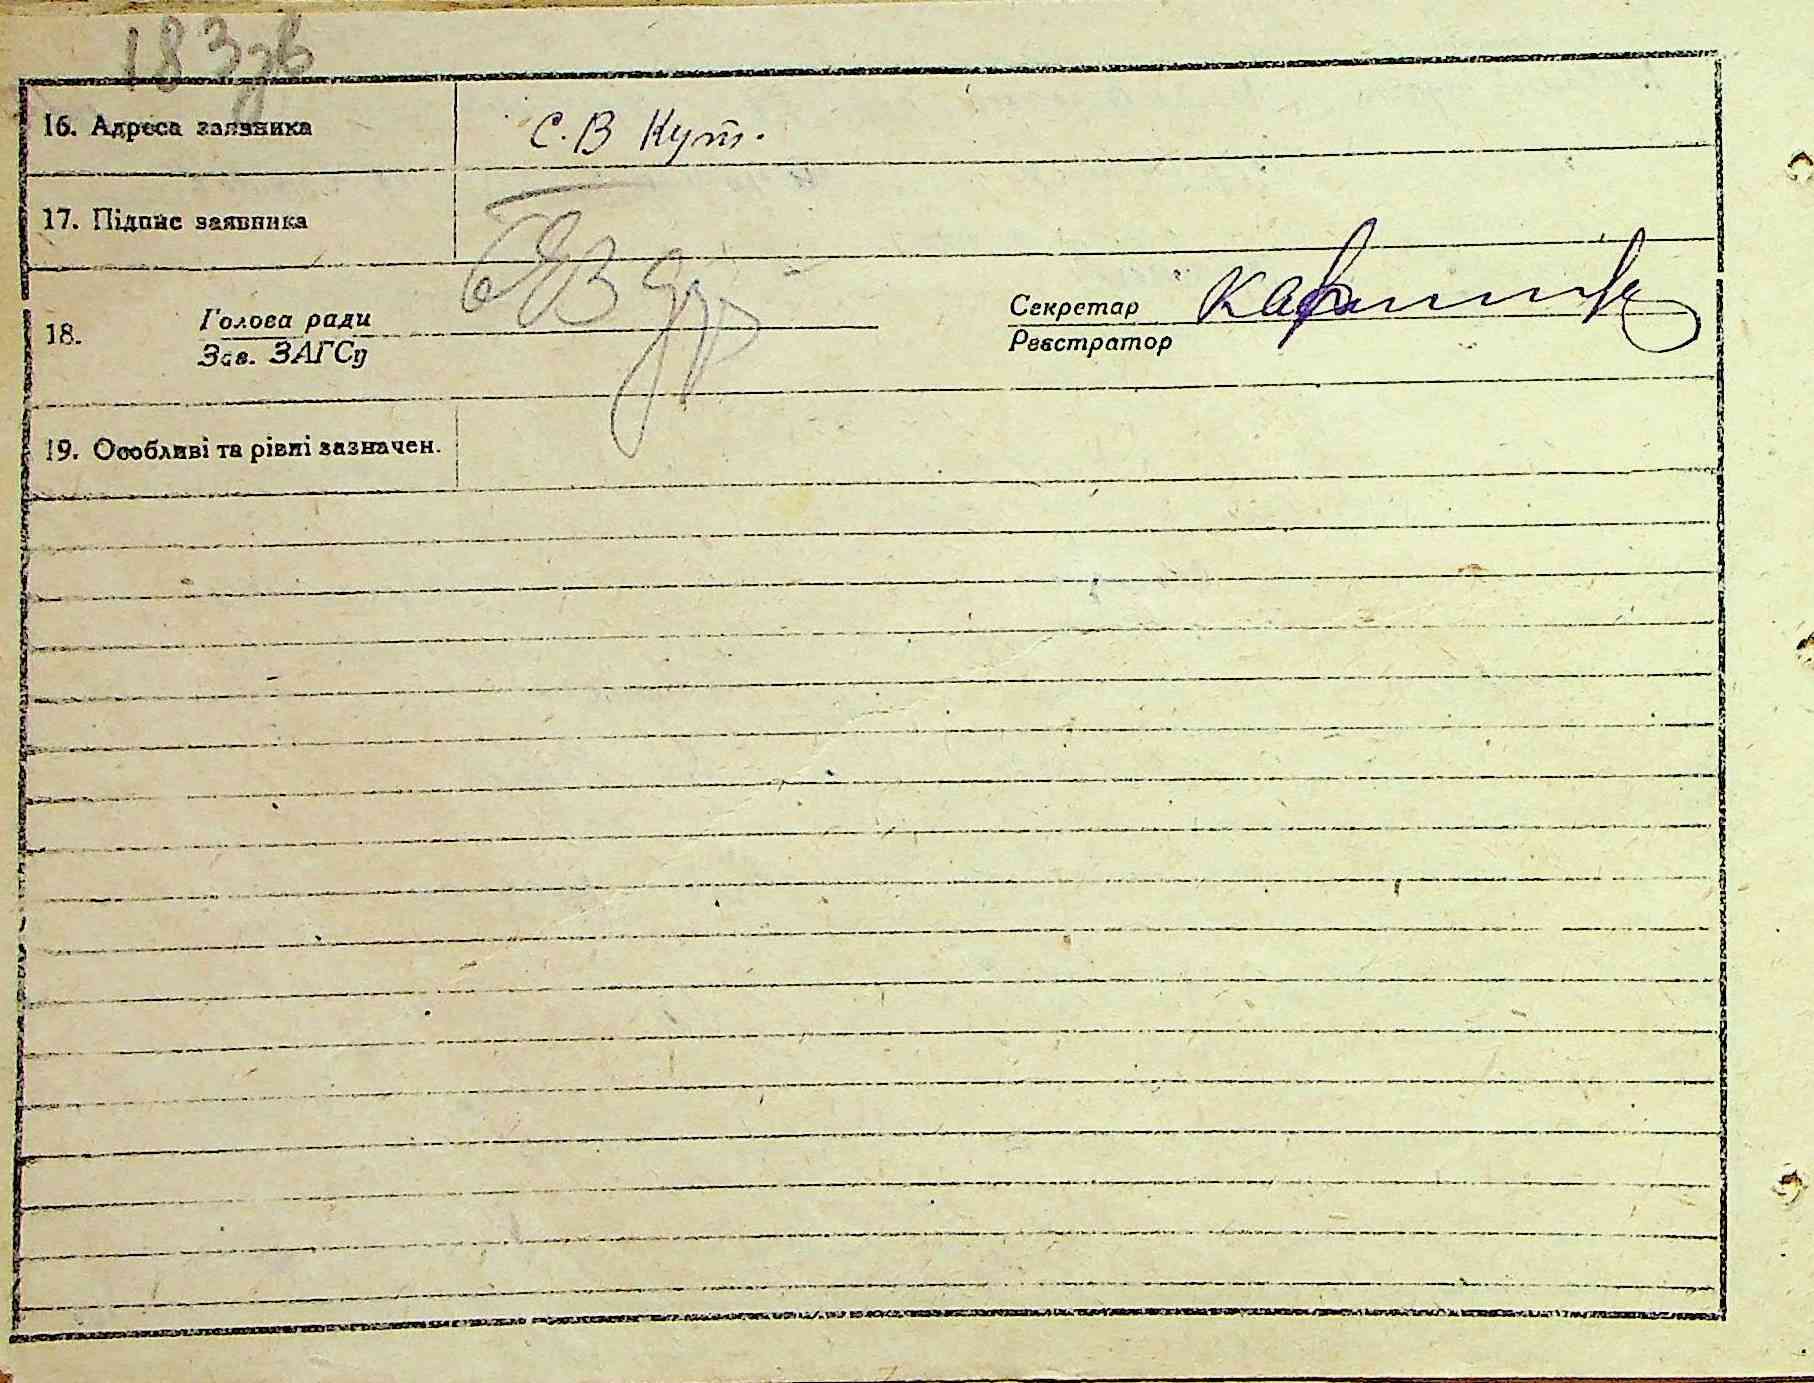 183зв
16. Адреса заявника С.В Кут.
17. Підпис заявника
18. Голова ради Секретар
Зав. ЗАГСу Реєстратор
19. Особливі та різні зазначен.